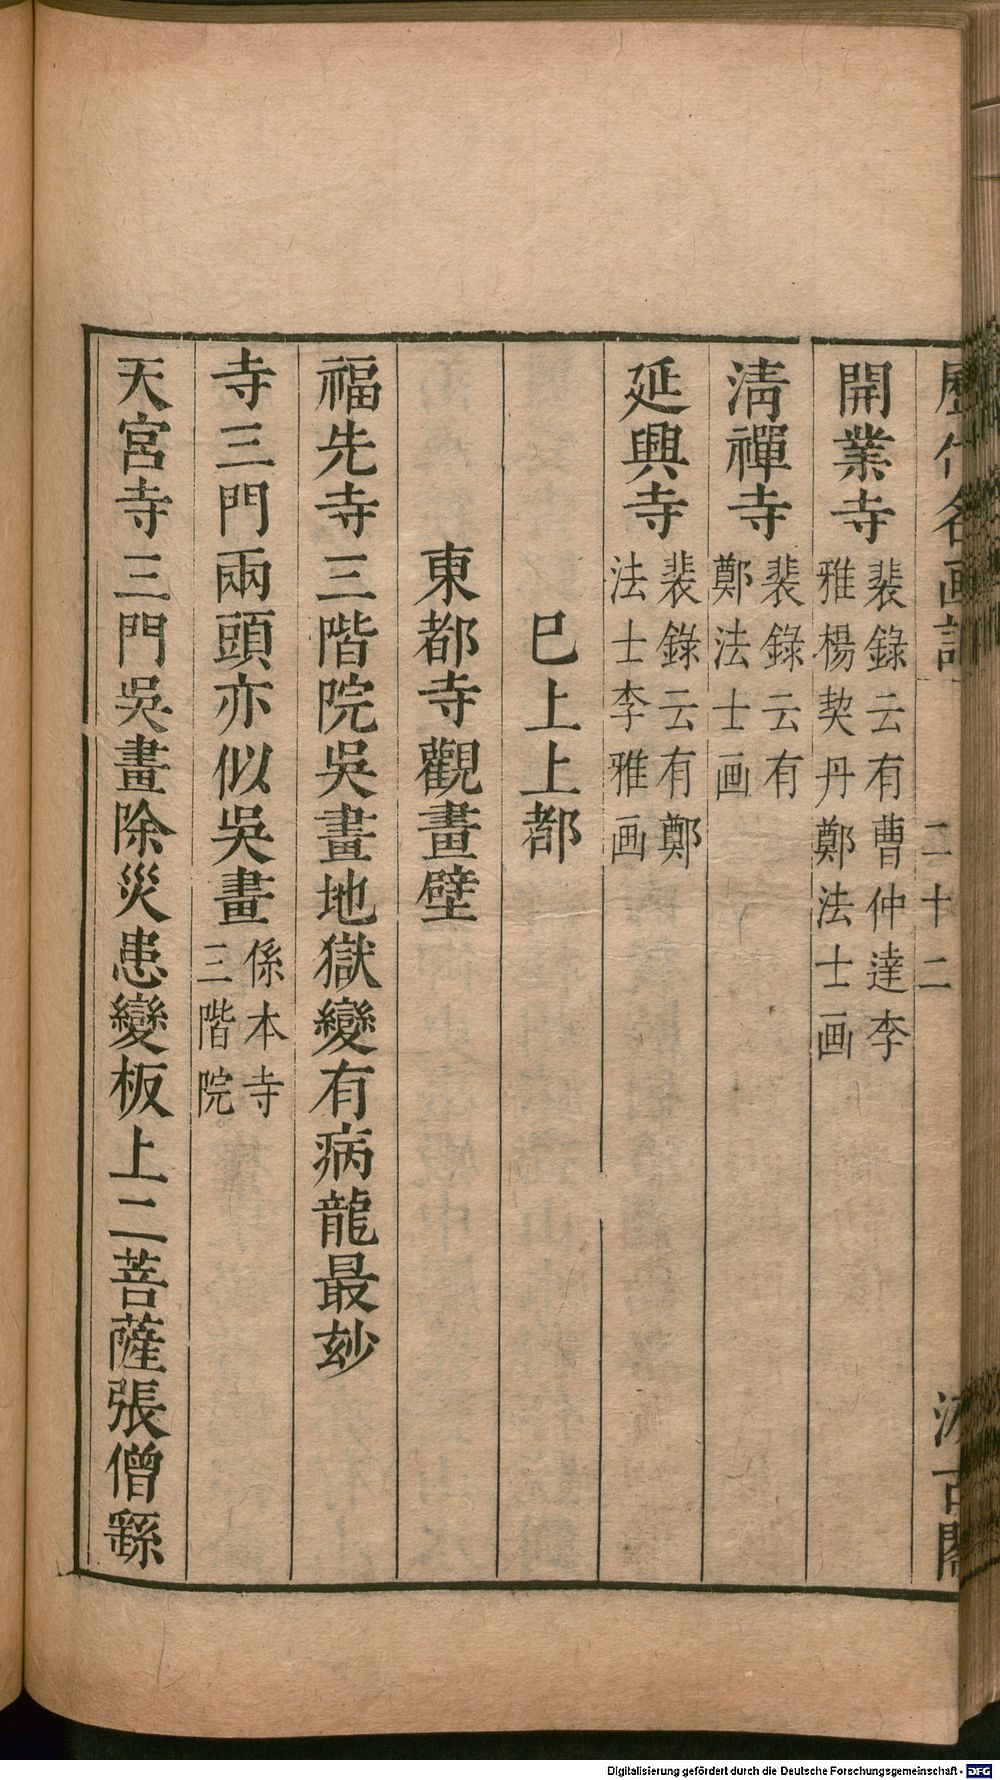 歷代名画記 二十二 汲古閣
開業寺 裴錄云有曹仲達李
雅楊契丹鄭法士画
淸禪寺 裴錄云有
鄭法士画
延興寺 裴錄云有鄭
法士李雅画
巳上上都
東都寺觀畫壁
福先寺三階院吳畫地獄變有病龍最玅
寺三門兩頭亦似吳畫 係本寺
三階院
天宮寺三門吳畫除災患變板上二菩薩張僧繇
Digitalisierung gefördert durch die Deutsche Forschungsgemeinschaft - DFG